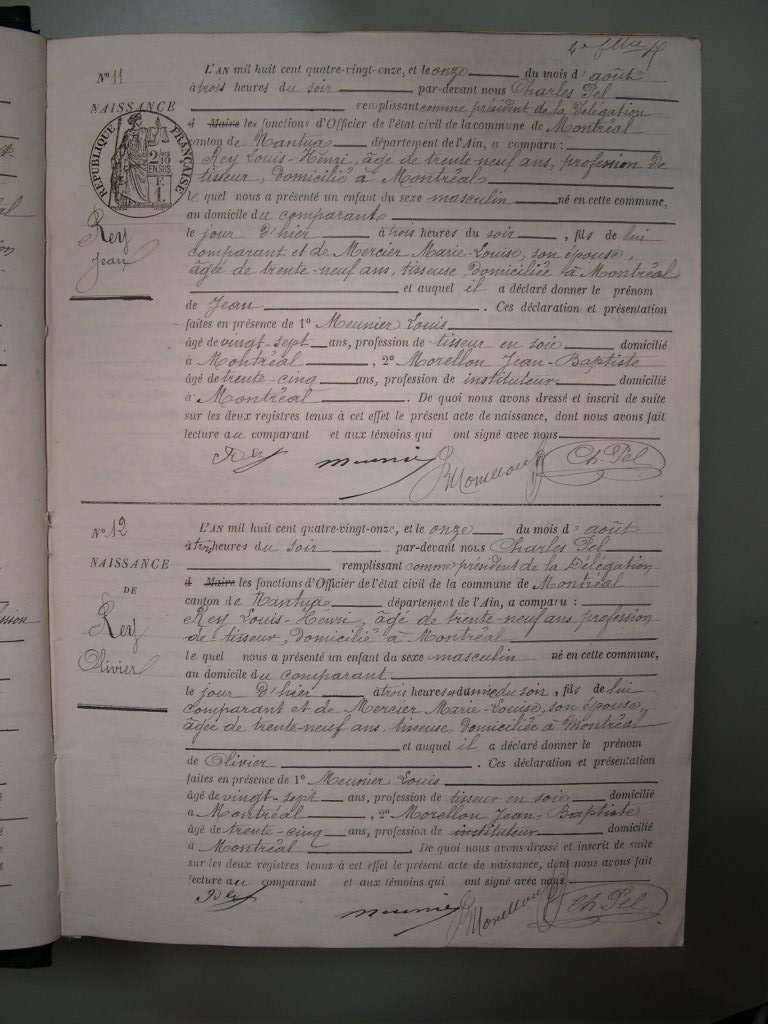 Nº 11
NAISSANCE
RÉPUBLIQUE FRANÇAISE
Rey
Jean
L'AN mil huit cent quatre-vingt-onze, et le onze du mois d' août
à trois heures du soir par-devant nous Charles Pel
remplissant comme président de la Délégation
d Maire les fonctions d'Officier de l'état civil de la commune de Montréal
canton de Nantua département de l'Ain, a comparu :
Rey Louis-Henri, âgé de trente-neuf ans, profession de
tisseur, domicilié à Montréal
le quel nous a présenté un enfant du sexe masculin né en cette commune,
au domicile du comparant
le jour d'hier à trois heures du soir, fils de lui
comparant et de Mercier Marie-Louise, son épouse,
âgée de trente-neuf ans, tisseuse, domiciliée à Montréal
et auquel il a déclaré donner le prénom
de Jean. Ces déclaration et présentation
faites en présence de 1º Meunier Louis
âgé de vingt-sept ans, profession de tisseur en soie domicilié
à Montréal, 2º Morellon Jean-Baptiste
âgé de trente-cinq ans, profession de instituteur domicilié
à Montréal. De quoi nous avons dressé et inscrit de suite
sur les deux registres tenus à cet effet le présent acte de naissance, dont nous avons fait
lecture au comparant et aux témoins qui ont signé avec nous
Rey Meunier Morellon Ch. Pel
Nº 12
NAISSANCE
DE
Rey
Olivier
L'AN mil huit cent quatre-vingt-onze, et le onze du mois d' août
à trois heures du soir par-devant nous Charles Pel
remplissant comme président de la Délégation
d Maire les fonctions d'Officier de l'état civil de la commune de Montréal
canton de Nantua département de l'Ain, a comparu :
Rey Louis-Henri, âgé de trente-neuf ans, profession
de tisseur, domicilié à Montréal
le quel nous a présenté un enfant du sexe masculin né en cette commune,
au domicile du comparant
le jour d'hier à trois heures et demie du soir, fils de lui
comparant et de Mercier Marie-Louise, son épouse,
âgée de trente-neuf ans, tisseuse, domiciliée à Montréal
et auquel il a déclaré donner le prénom
de Olivier. Ces déclaration et présentation
faites en présence de 1º Meunier Louis
âgé de vingt-sept ans, profession de tisseur en soie domicilié
à Montréal, 2º Morellon Jean-Baptiste
âgé de trente-cinq ans, profession de instituteur domicilié
à Montréal. De quoi nous avons dressé et inscrit de suite
sur les deux registres tenus à cet effet le présent acte de naissance, dont nous avons fait
lecture au comparant et aux témoins qui ont signé avec nous
Rey Meunier Morellon Ch. Pel